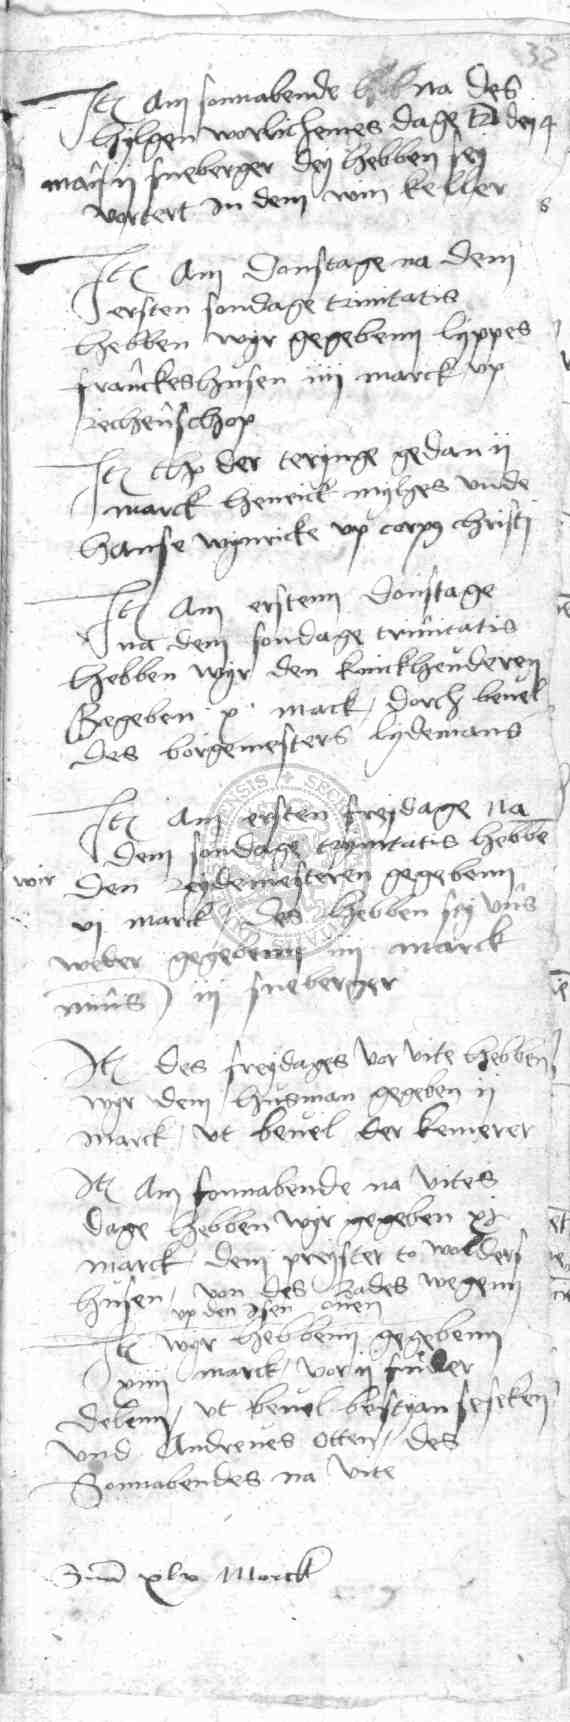 32
Itē Am sonnabende na des
hylgen worlichemes dage dey 4
man ij sneberger dey hebben sey
vortert In dem win keller
Itē Am Donstage na dem
ersten sondage trinitatis
hebben wyr gegebenn lyppes
franckeshusen iiij marck vp
rechenschop
Itē der teringe gedan ij
marck henrick mylges vnde
hanse wynricke vp corpꝯ christi
Itē Am erstenn Donstage
na dem sondage trinitatis
hebben wyr den kuickheuderen
Gegeben x mack / dorch beuel
des borgemesters lydemans
Itē Am ersten freydage na
dem sondage trynitatis hebbe
wir den reydemesteren gegebenn
vj marck / des hebben sey vns
weder gegebenn iiij marck
min⁹ iij sneberger
Itē des freydages vor vite hebben
wyr dem husman gegeben ij
marck / vt beuel der kemerer
Itē Am sonnabende na vites
dage hebben wyr gegeben xj
marck / dem preyster to wolders
husen / von des Rades wegenn
vp den Isen ouen
Itē wyr hebbenn gegebenn
xiiij marck / vor ij
delenn / vt beuel bestyan seseken
vnd Andrewes Otten / des
Sonnabendes na vite
Sūma xlv Marck